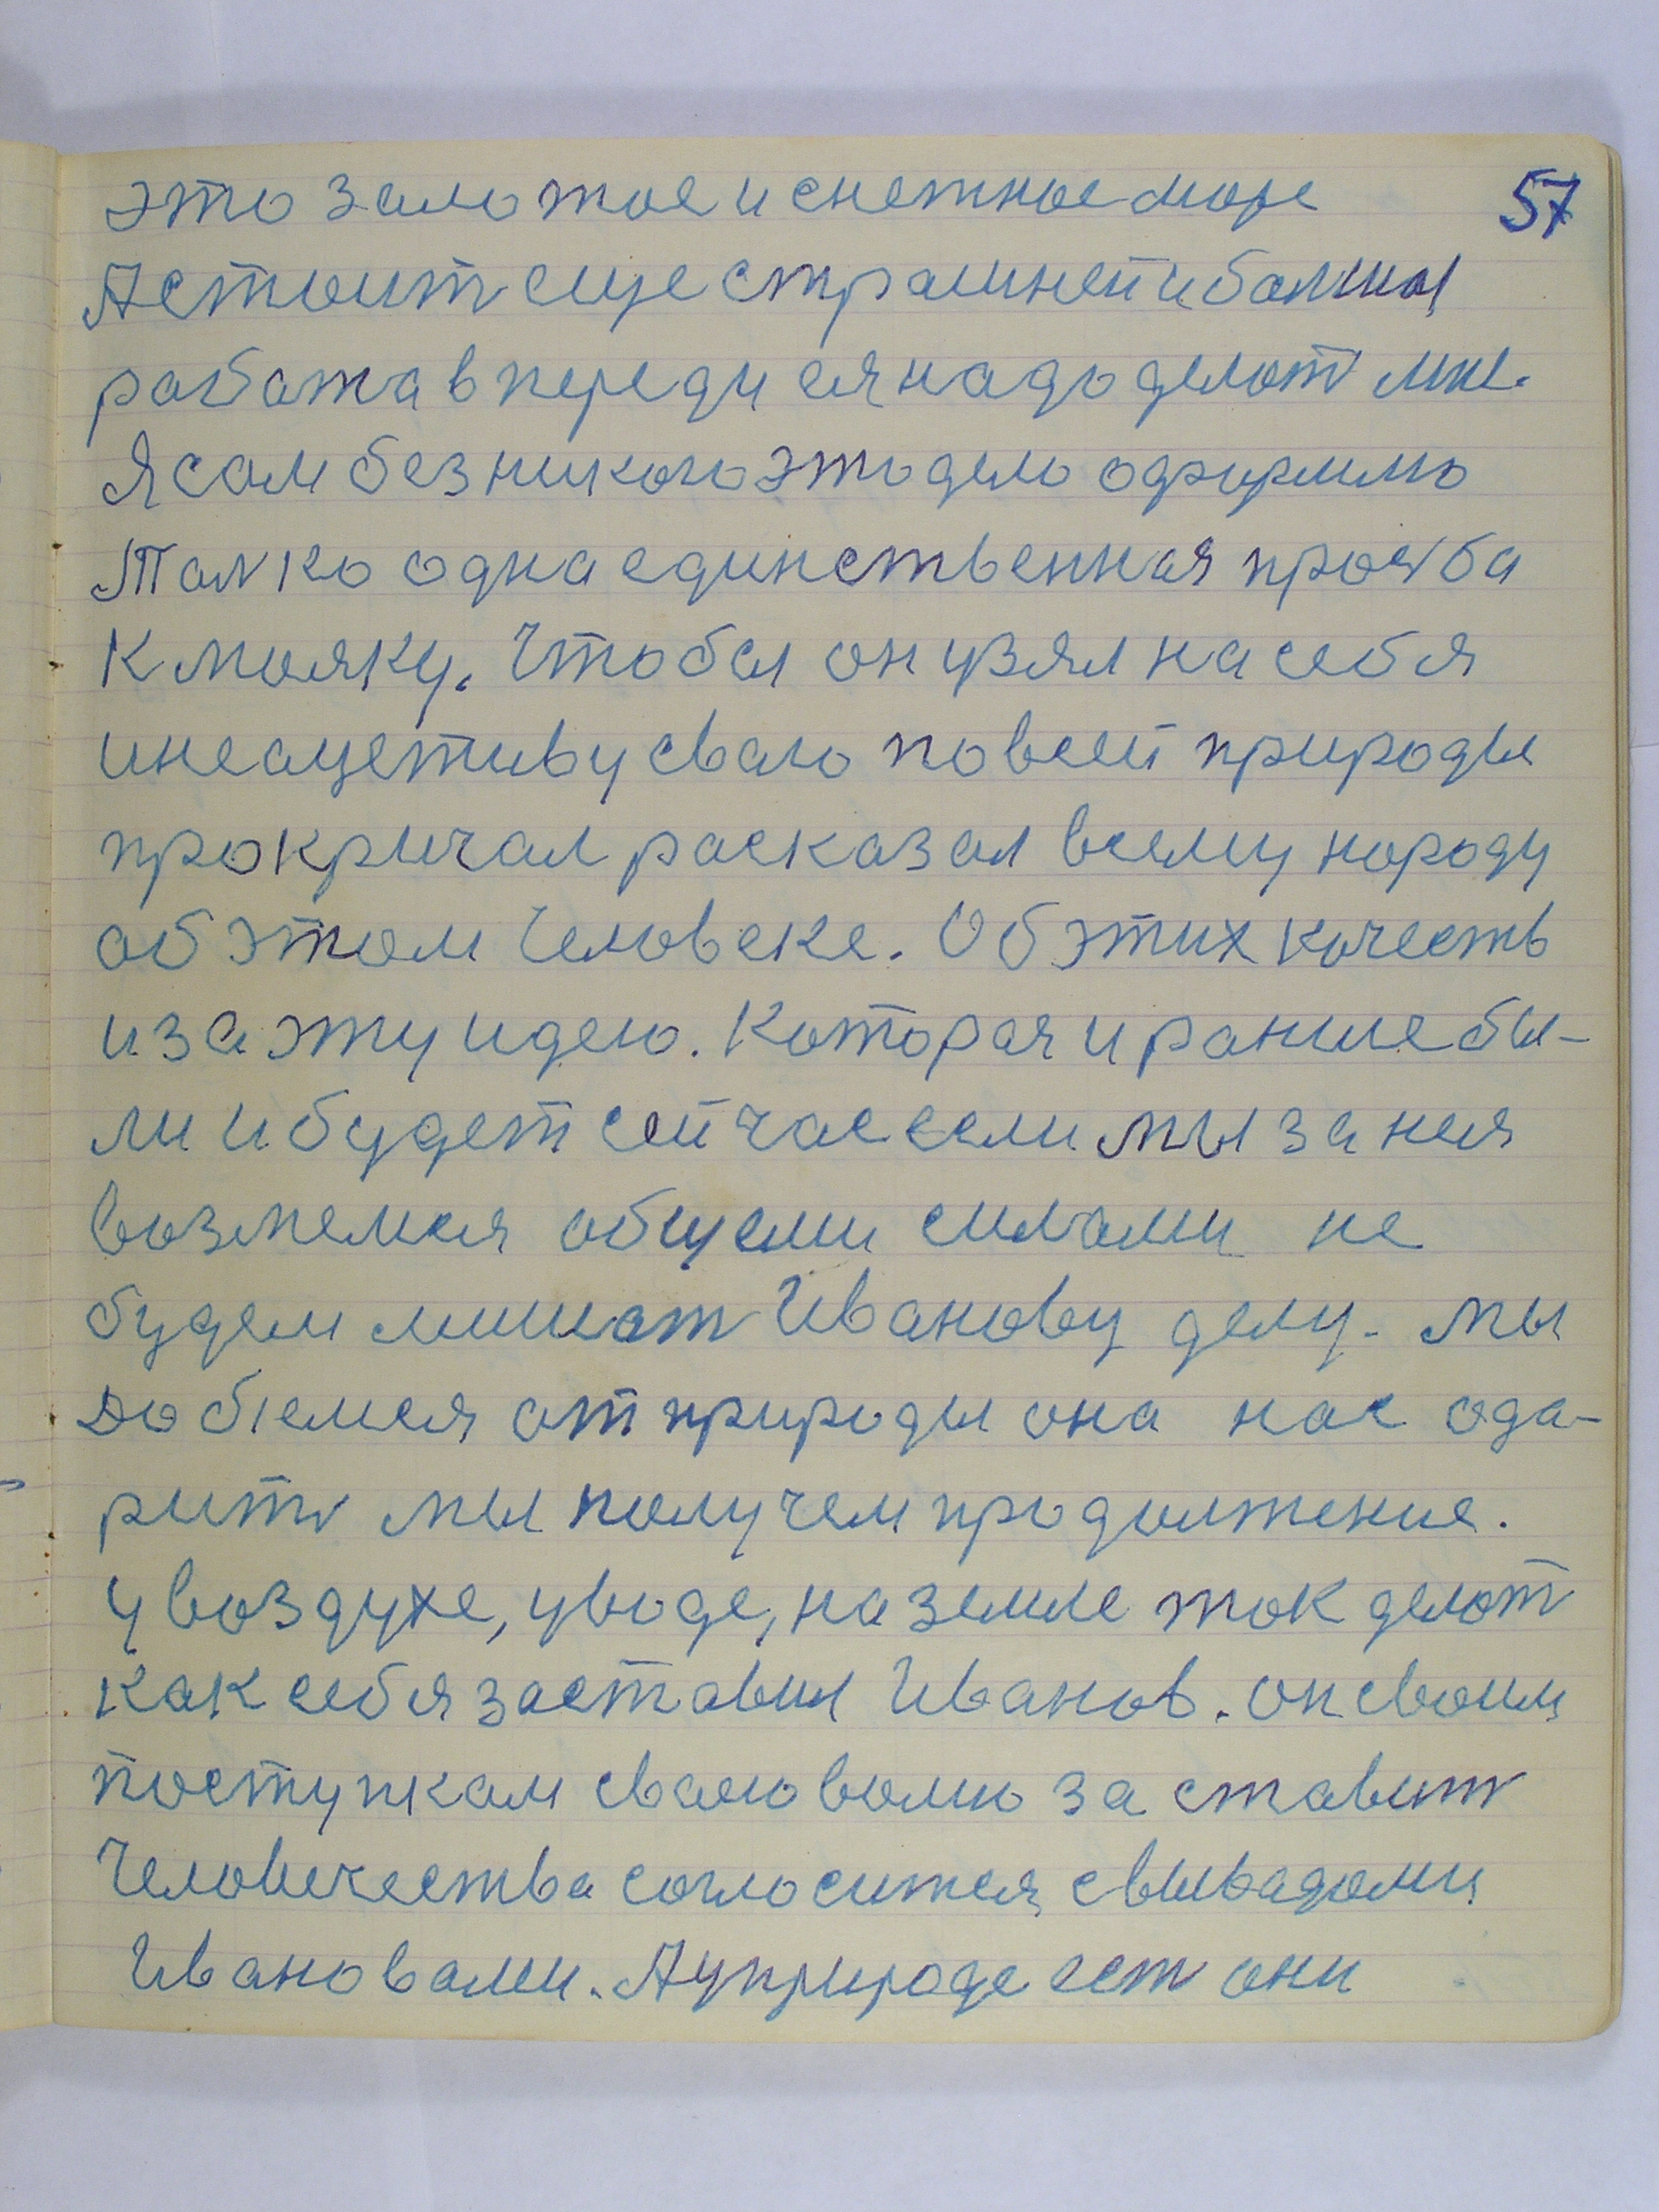 57
это залотое и снежное море
А стоит еще страшней и болшы
работа в переди ея надо делат мне.
Я сам без никого это дело оформлю
Толко одна единственная прозба
К мояку. Чтобы он узял на себя
инеацетиву сваю по всей природы
прокричал расказал всему народу
об этом Человеке. Об этих качеств
и за эту идею. Которая и раньше бы-
ли и будет сейчас если мы за нея
возмемся общеми силами не
будем мишат Иванову делу. мы
Добіемся от природы она нас ода-
рить мы получем продолжение.
у воздухе, у воде, на земле ток делат
как себя заставил Иванов. он своим
поступкам сваю волю за ставит
Человечества согласится с вывадами
Ивановами. А у природе ест они